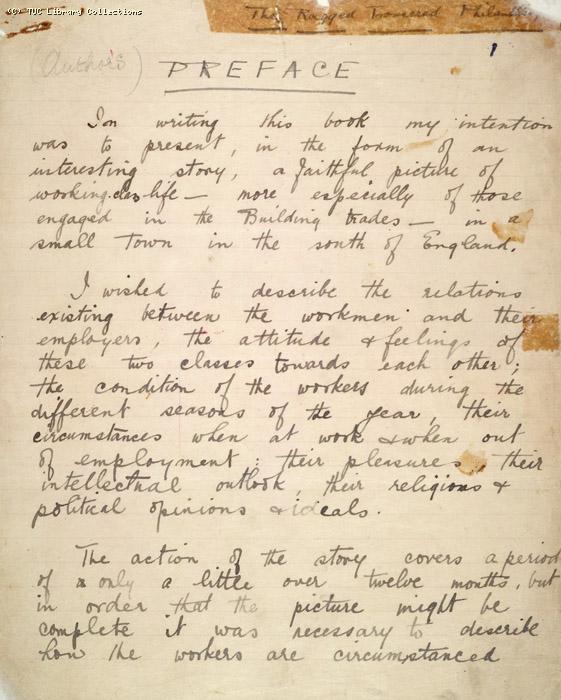 (C) TUC Library Collections
The Ragged Trousered
1
(Author's) PREFACE
In writing this book my intention
was to present, in the form of an
interesting story, a faithful picture of
working-class life – more especially of those
engaged in the Building trades – in a
small town in the south of England.
I wished to describe the relations
existing between the workmen and their
employers, the attitude & feelings of
these two classes towards each other;
the condition of the workers during the
different seasons of the year, their
circumstances when at work & when out
of employment: their pleasures, their
intellectual outlook, their religious &
political opinions & ideals.
The action of the story covers a period
of only a little over twelve months, but
in order that the picture might be
complete it was necessary to describe
how the workers are circumstanced